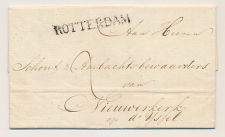 ROTTERDAM
Aan Heeren
Schout & Ambachtsbewaarders
van
Nieuwerkerk
op d'Yssel